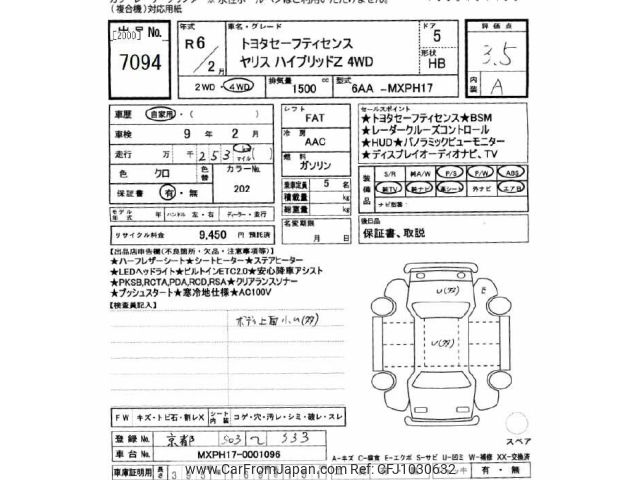 (複合機)対応用紙
出品No.
[2000]
7094
年式
R 6
/ 2 月
車名・グレード
トヨタセーフティセンス
ヤリス ハイブリッドZ 4WD
ドア
5
形状
HB
評価点
3.5
内装
A
2WD・4WD
排気量
1500 cc
型式
6AA -MXPH17
車歴
自家用・( )
車検
9 年 2 月
走行
万 千 253 km マイル ( )
色
クロ
色替
カラーNo.
202
保証書
有・無
シフト
FAT
冷房
AAC
燃料
ガソリン
乗車定員
5 名
積載量
kg
総重量
kg
セールスポイント
★トヨタセーフティセンス★BSM
★レーダークルーズコントロール
★HUD★パノラミックビューモニター
★ディスプレイオーディオナビ、TV
装備品
S/R 純A/W P/S P/W ABS
純TV 純ナビ 革シート 外ナビ エアB
ナビ型番:
モデル年式
年
ハンドル
左・右
ディーラー・並行
リサイクル料金
9,450 円 預託済
名変期限
月 日
後日品
保証書、取説
【出品店申告欄(不良箇所・欠品・注意事項等)】
★ハーフレザーシート★シートヒーター★ステアヒーター
★LEDヘッドライト★ビルトインETC2.0★安心降車アシスト
★PKSB,RCTA,PDA,RCD,RSA★クリアランスソナー
★プッシュスタート★寒冷地仕様★AC100V
【検査員記入】
ボディ上面小U(多)
U(多)
E
U(多)
スペア
FW
キズ・トビ石・割レX
シート内装
コゲ・穴・汚レ・シミ・破レ・スレ
登録No.
京都 503 533
車台No.
MXPH17-0001096
A-キズ C-腐食 E-エクボ S-サビ U-凹ミ W-補修 XX-交換済
車庫証明用
有・無
www.CarFromJapan.com Ref: CFJ1030632